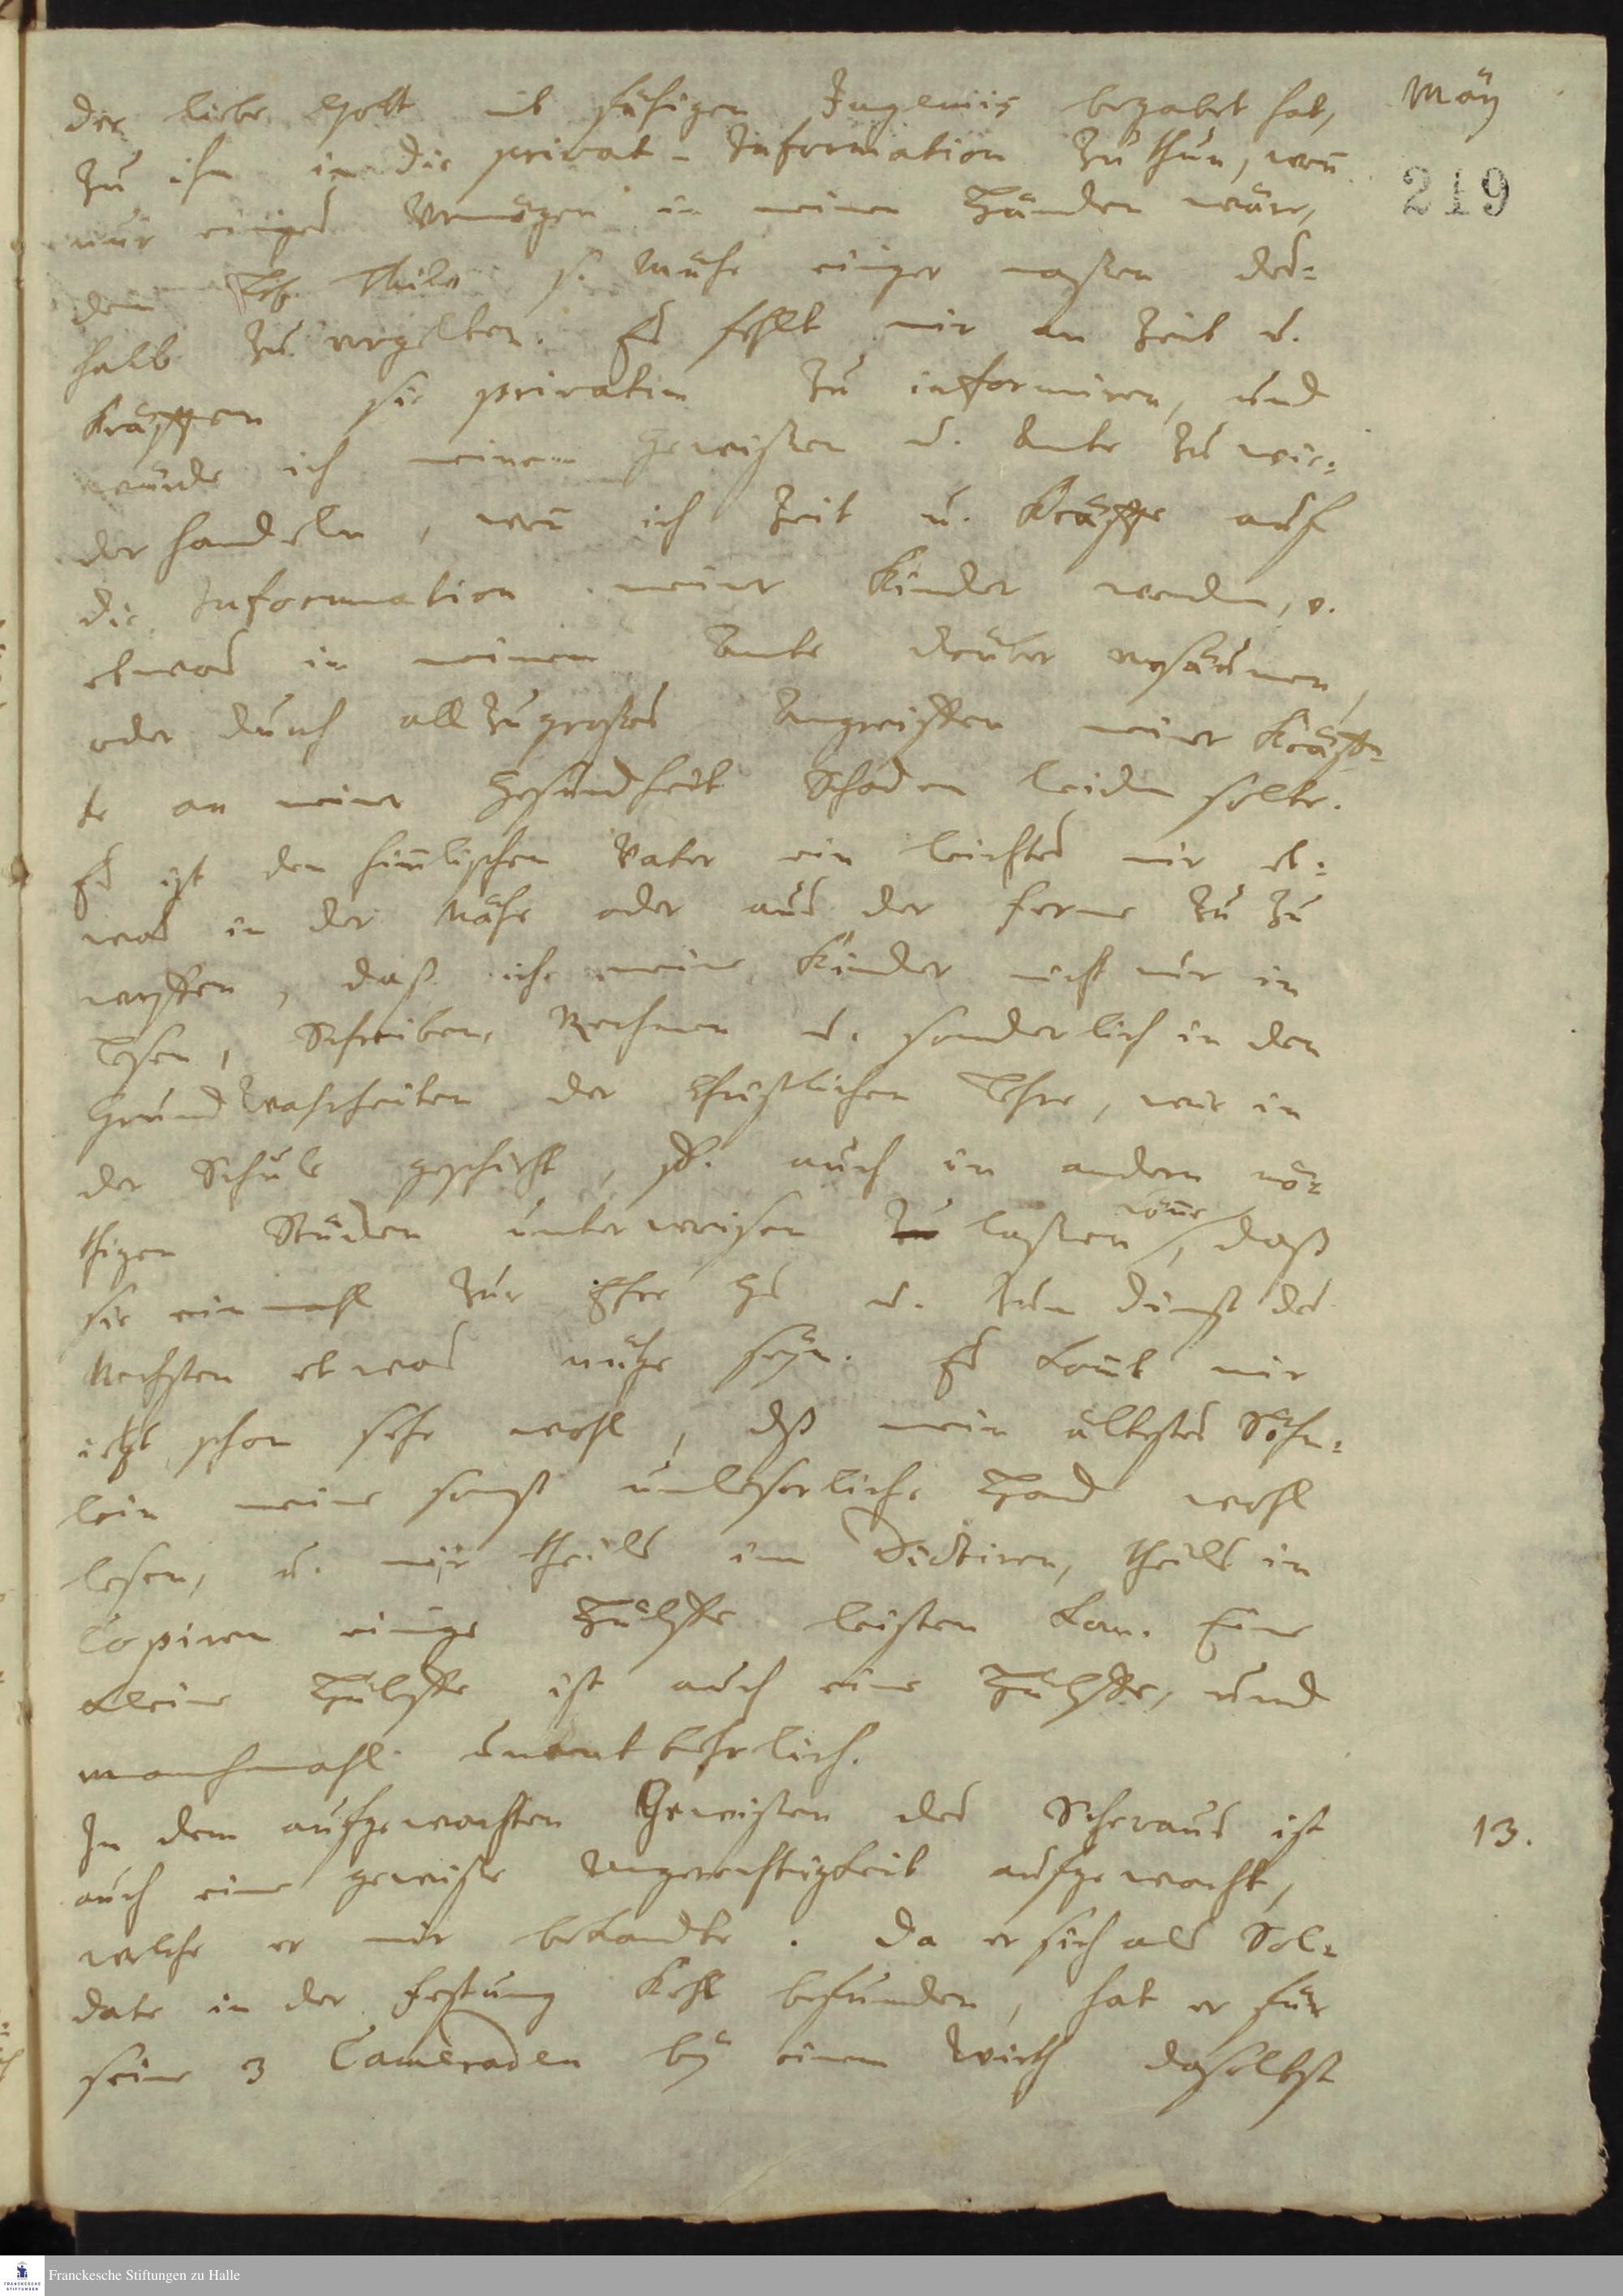 May
219
der liebe Gott mit fähigen Ingeniis begabet hat,
zu ihm in die privat-Information zu thun, weñ
nur einiges Vermögen in meinen Händen wäre,
dem Thilo s. Mühe einiger maßen des=
halb zu vergelten. Es fehlt mir an Zeit u.
Kräfften sie privatim zu informiren, und
würde ich meinem Gewißen u. Amte zu wie=
der handeln, weñ ich Zeit u. Kräffte auf
die Information meiner Kinder wenden, u.
etwas in meinem Amte drüber versäumen,
oder durch allzugroßes Angreiffen meiner Kräff=
te an meiner Gesundheit Schaden leiden solte.
Es ist dem him̃lischen Vater ein leichtes mir et=
was in der Nähe oder aus der ferne zu zu
werffen, daß ich meine Kinder nicht nur in
Lesen, Schreiben, Rechnen u. sonderlich in den
Grund Wahrheiten der Christlichen Lehre, wie in
der Schule geschieht, sd. auch in andern nö=
thigen Stücken unterweisen zu laßen köñe, daß
sie einmahl zur Ehre Gs u. zum Dienst des
Nechsten etwas nütze seyn. Es komt mir
ietzt schon sehr wohl, dß mein ältestes Söhn=
lein meine sonst unleserliche Hand wohl
lesen, u. mir theils im Dictiren, theils in
Copiren einige Hülffe leisten kan. Eine
kleine Hülffe ist auch eine Hülffe, und
manchmahl unentbehrlich.
13.
In dem aufgewachten Gewißen des Schevaus ist
auch eine gewiße Ungerechtigkeit aufgewacht,
welche er mir bekandte. Da er sich als Sol=
date in der Festung Kehl befunden, hat er für
seine 3 Cameraden bey einem Wirth daselbst
Franckesche Stiftungen zu Halle